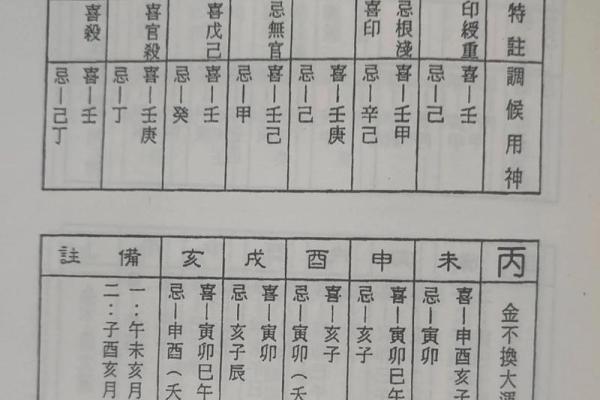 特註
印綬重
忌根淺
喜印
忌無官
喜戊己
喜官殺
喜殺
調候用神
喜—壬
忌—己
喜—壬甲
忌—辛己
喜—壬庚
忌—己
喜—壬己
忌—甲
喜—壬
忌—癸
喜—壬庚
忌—丁
喜—壬
忌—己丁
丙
未
申
酉
戌
亥
備註
金不換大運
喜—申酉亥子
忌—寅卯
喜—寅卯巳午
忌—亥子
喜—亥子
忌—寅卯（夭
喜—寅卯
忌—亥子辰
喜—寅卯巳午
忌—申酉（夭
一：午未亥月
二：子酉亥月